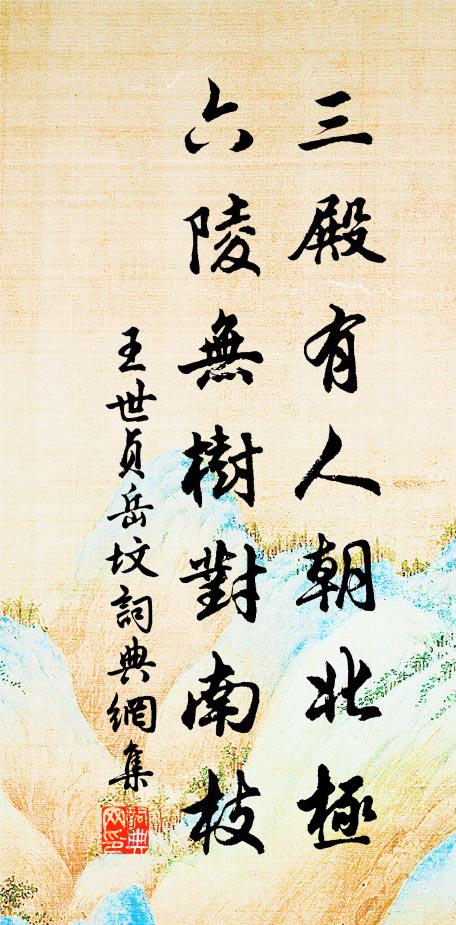 三殿有人朝北極
六陵無樹對南枝
王世貞岳坟詞典網集
詞典網印